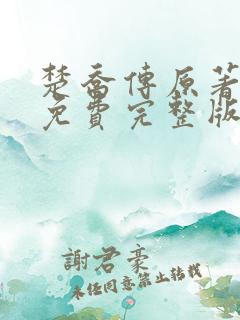 楚喬傳原著
免費完整版
謝君豪
未任同意禁止转载